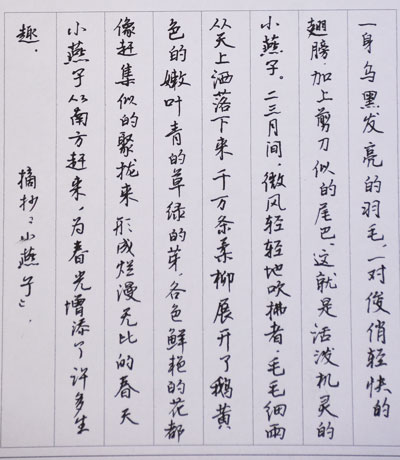 一身乌黑发亮的羽毛，一对俊俏轻快的
翅膀，加上剪刀似的尾巴，这就是活泼机灵的
小燕子。二三月间，微风轻轻地吹拂着，毛毛细雨
从天上洒落下来，千万条柔柳展开了鹅黄
色的嫩叶，青的草绿的芽，各色鲜艳的花都
像赶集似的聚拢来，形成烂漫无比的春天
小燕子从南方赶来，为春光增添了许多生
趣。
摘抄《小燕子》。